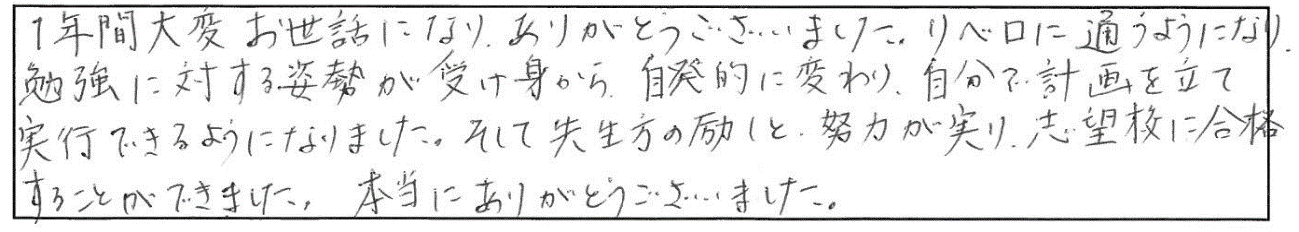 1年間大変お世話になり、ありがとうございました。リベロに通うようになり、
勉強に対する姿勢が受け身から、自発的に変わり、自分で計画を立て
実行できるようになりました。そして先生方の励しと、努力が実り、志望校に合格
することができました。本当にありがとうございました。